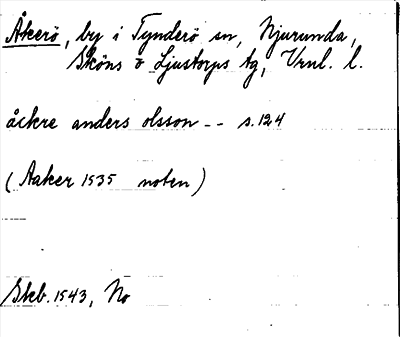 Åkerö, by i Tynderö sn, Njurunda,
Sköns o Ljustorps tg, Vrnl. l.
åckre anders olsson -- s.124
(Aaker 1535 noten)
Skb. 1543, No